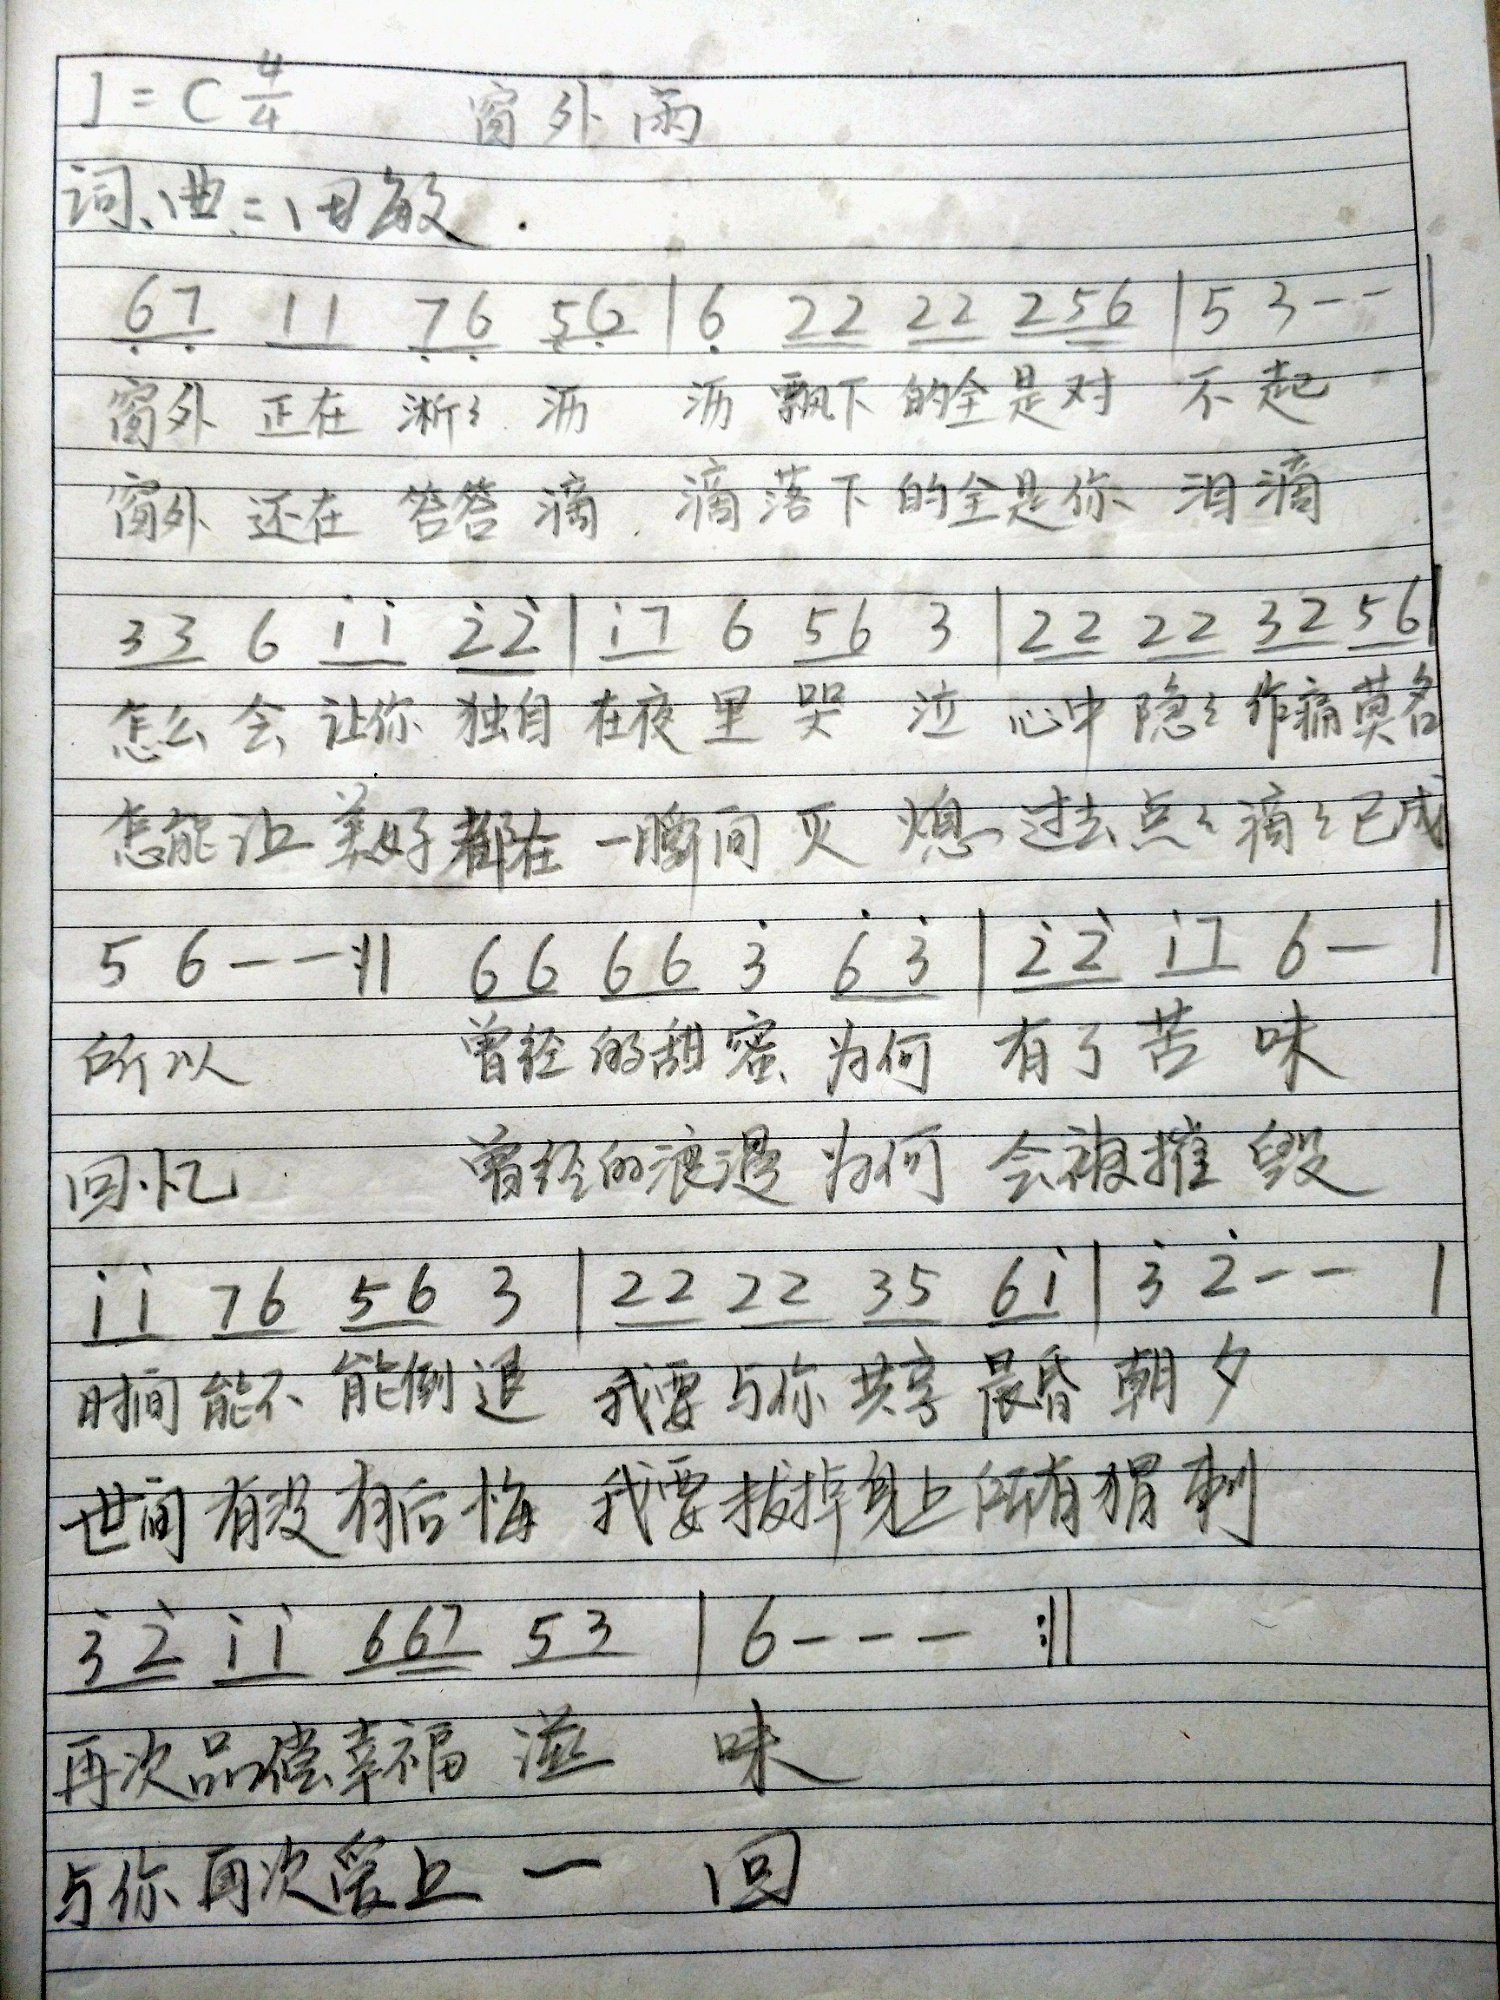 1=C 4/4 窗外雨
词、曲:田敏.
67 11 76 56 | 6 22 22 256 | 5 3 - - |
窗外 正在 淅〻 沥 沥 飘下 的全是对 不起
窗外 还在 答答 滴 滴 落下 的全是你 泪滴
33 6 i̇i̇ 2̇2̇ | i̇7 6 56 3 | 22 22 32 56 |
怎么 会 让你 独自 在夜 里 哭 泣 心中 隐〻 作痛莫名
怎能 让 美好 都在 一瞬间 灭 熄 过去 点〻 滴〻 已成
5 6 - - :‖ 66 66 3̇ 6̇3̇ | 2̇2̇ i̇7 6 - |
所以 曾经 的甜 蜜 为何 有了 苦 味
回忆 曾经的浪漫 为何 会被摧 毁
i̇i̇ 76 56 3 | 22 22 35 6i̇ | 3̇ 2̇ - - |
时间 能不 能倒 退 我要 与你 共享 晨昏 朝 夕
世间 有没 有后 悔 我要 拔掉 身上 所有 猬 刺
3̇2̇ i̇i̇ 667 53 | 6 - - - :‖
再次品偿幸福 滋 味
与你 再次爱上 一 回